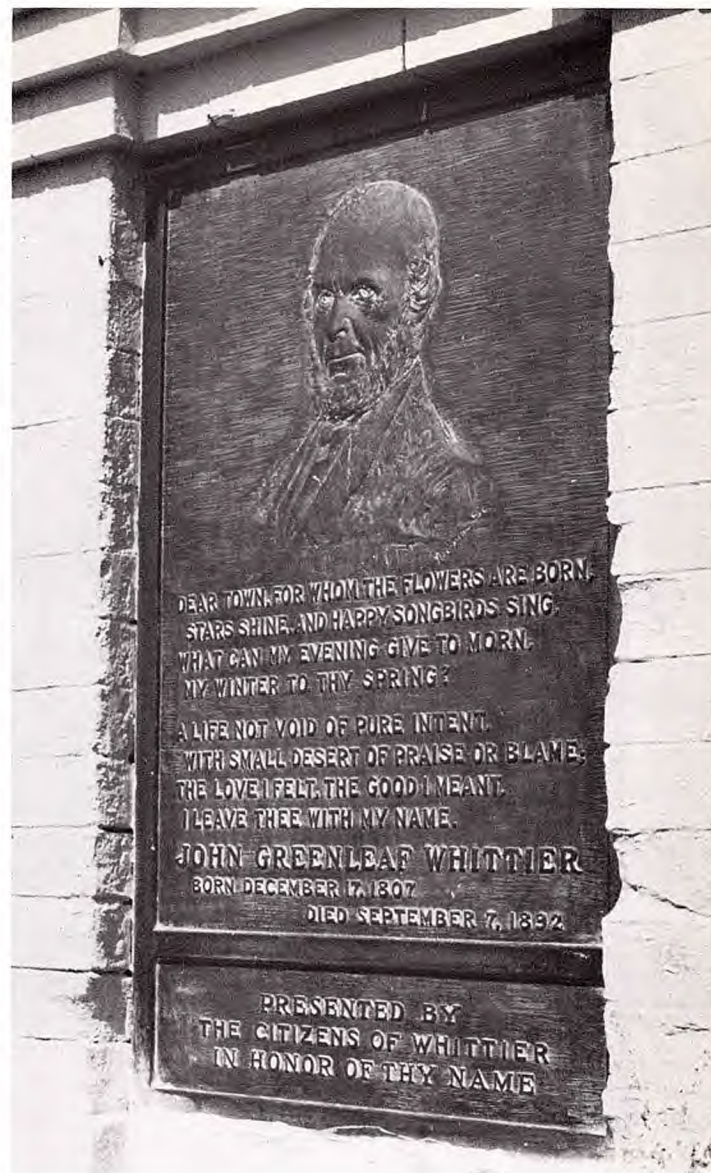 DEAR TOWN, FOR WHOM THE FLOWERS ARE BORN,
STARS SHINE, AND HAPPY SONGBIRDS SING,
WHAT CAN MY EVENING GIVE TO MORN,
MY WINTER TO THY SPRING?
A LIFE NOT VOID OF PURE INTENT,
WITH SMALL DESERT OF PRAISE OR BLAME;
THE LOVE I FELT, THE GOOD I MEANT,
I LEAVE THEE WITH MY NAME.
JOHN GREENLEAF WHITTIER
BORN DECEMBER 17, 1807
DIED SEPTEMBER 7, 1892
PRESENTED BY
THE CITIZENS OF WHITTIER
IN HONOR OF THY NAME